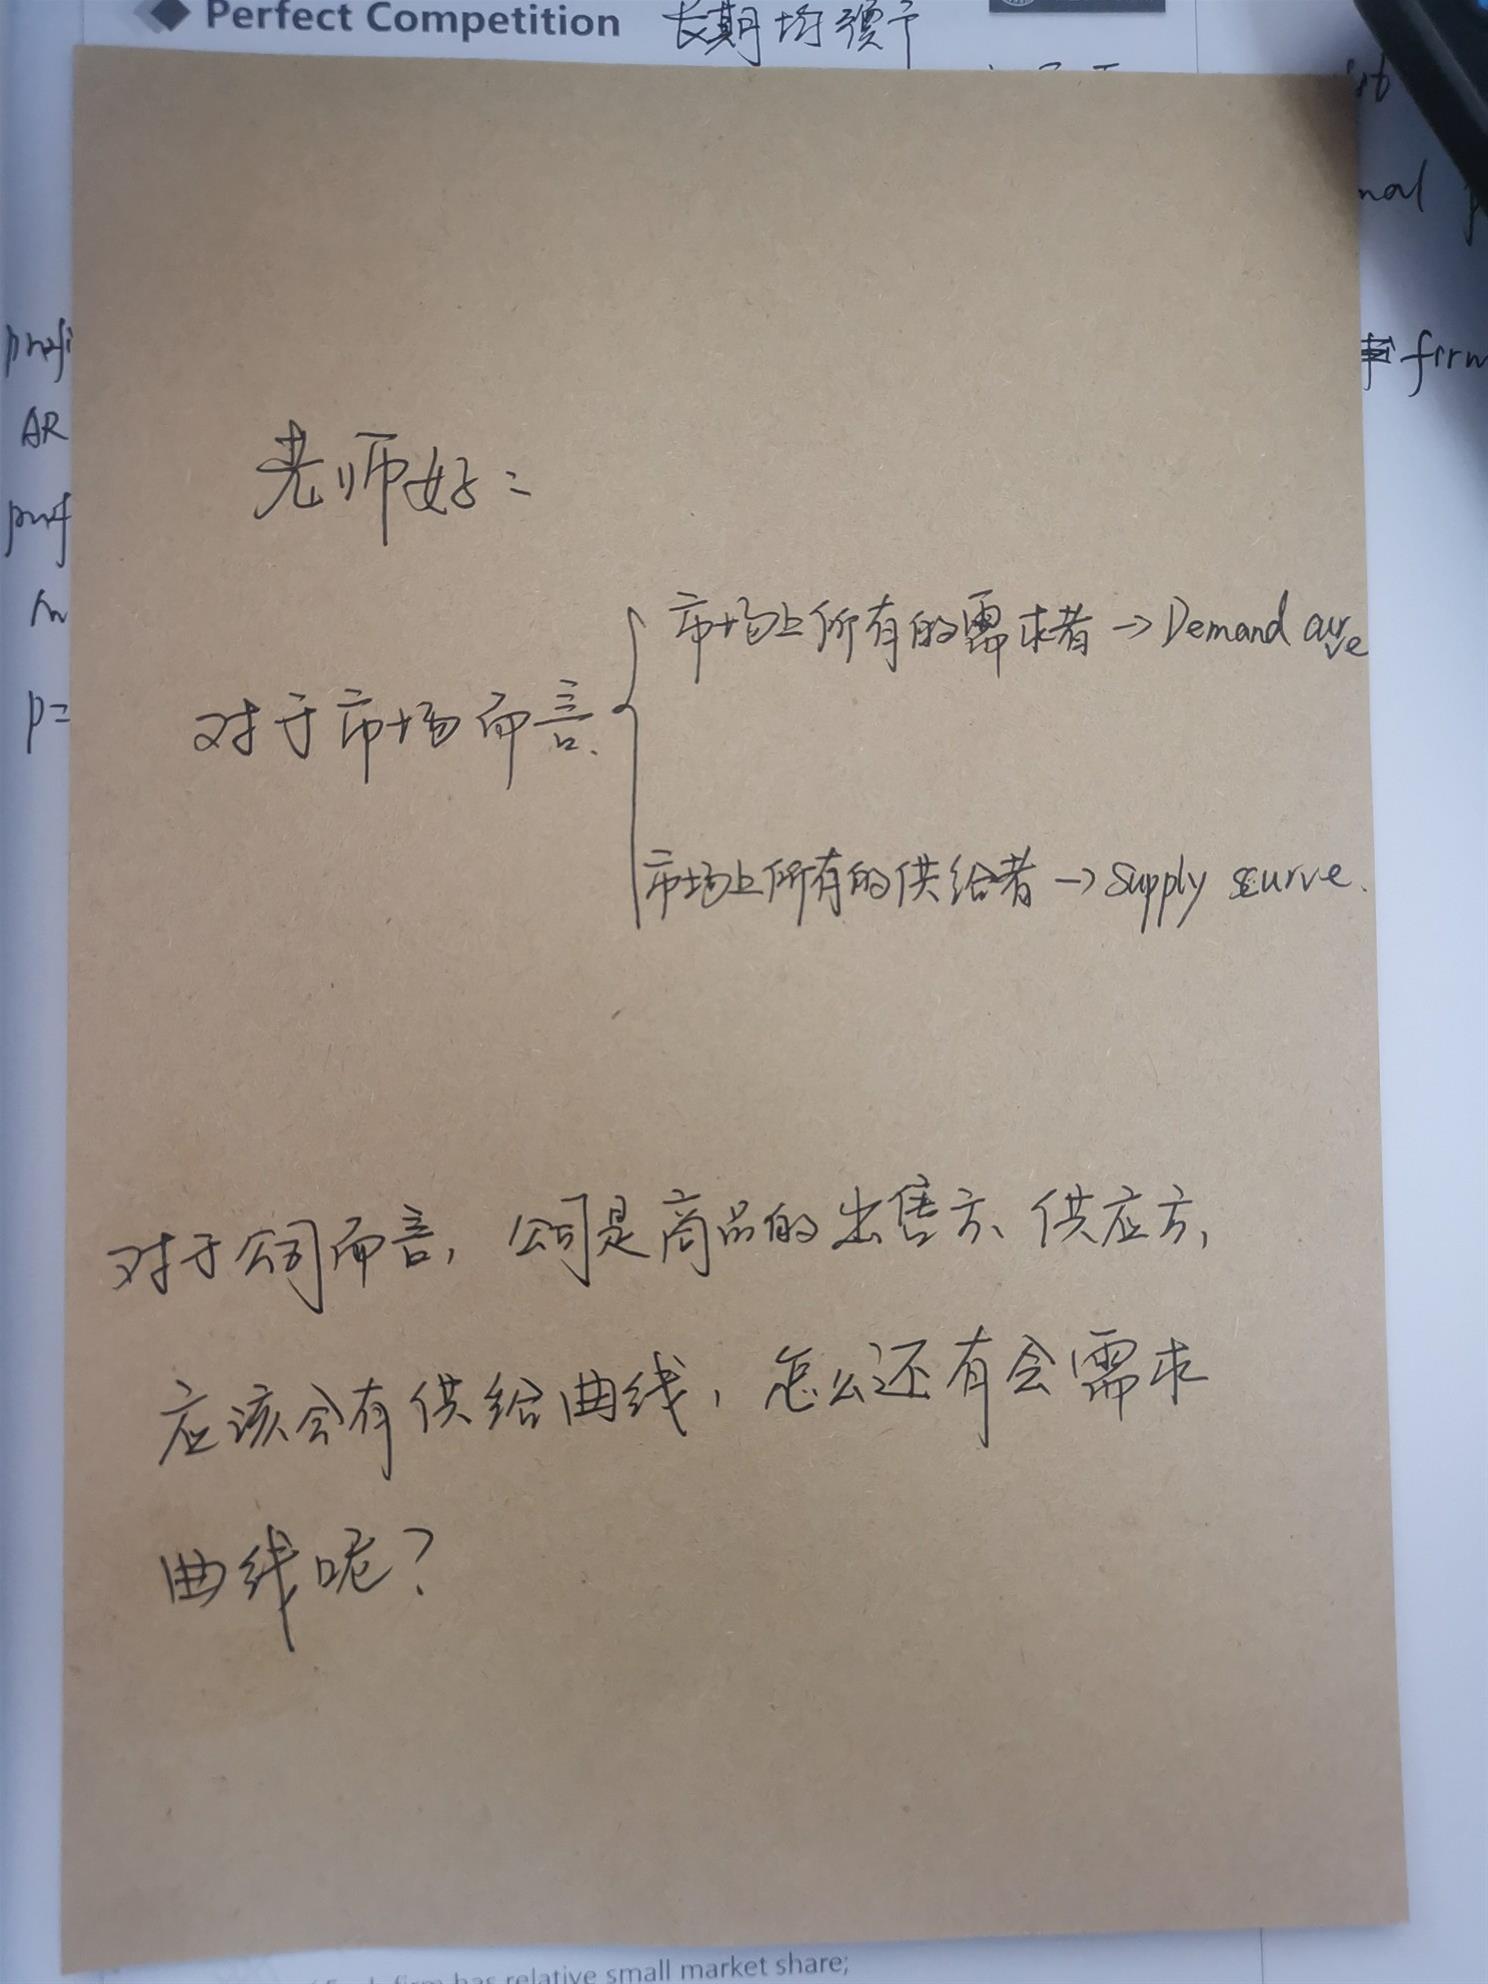 Perfect Competition 长期均衡
老师好：
对于市场而言
市场上所有的需求者→Demand curve
市场上所有的供给者→supply curve.
对于公司而言，公司是商品的出售方、供应方，
应该会有供给曲线，怎么还有会需求
曲线呢？
AR
p=
firm
firm has relative small market share;